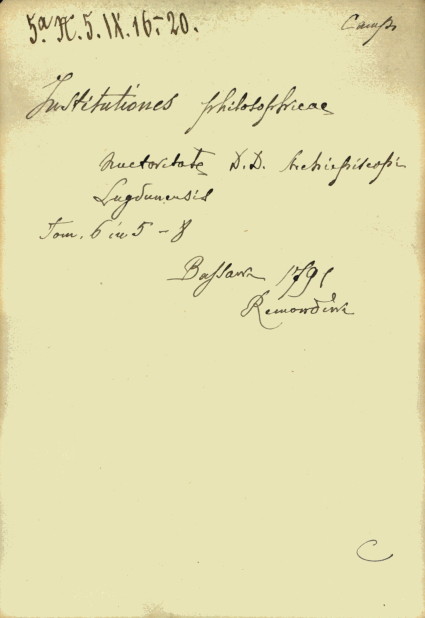 5.ª H. 5. IX. 16-20.
Institutiones philosophicae
Auctoritate D.D. Archiepiscopi
Lugdunensis
Tom. 6 in 5 - 8
Bassani 1791
Remondini
C